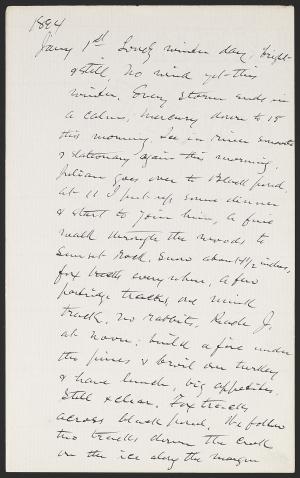 1894
Jany 1st Lovely winter day, bright
& still. No wind yet this
winter. Every storm ends in
a calm; mercury down to 15
this morning. Ice in river smooth
& stationary again this morning.
Julian goes over to Black pond.
at 11 I put up some dinner
& start to join him, a fine
walk through the woods to
Sunset Rock. Snow about 4 1/2 inches,
fox tracks everywhere, a few
partridge tracks, one mink
track, no rabbits. Reach J.
at noon; build a fire under
the pines & broil our turkey
& have lunch, big appetites.
Still & clear. Fox tracks
across black pond. We follow
two tracks down the creek
on the ice along the margin